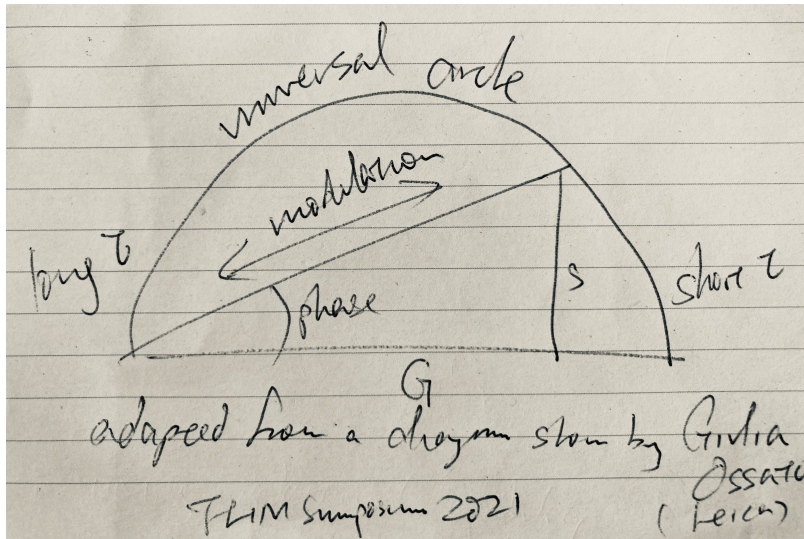 universal circle
modulation
long τ
phase
S
short τ
G
adapted from a diagram shown by Giulia
Ossato
FLIM Symposium 2021
(Leica)